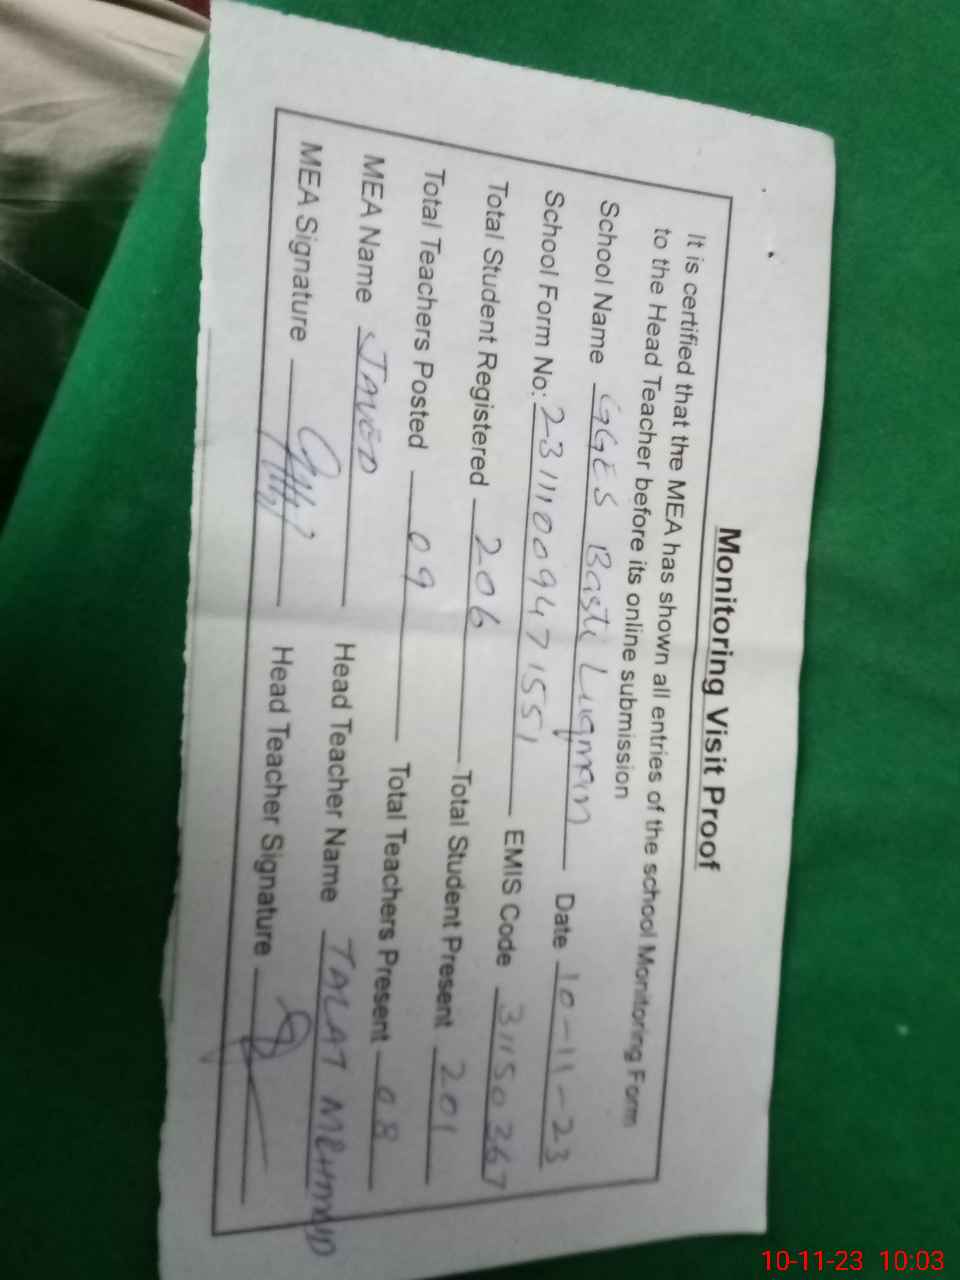 Monitoring Visit Proof
It is certified that the MEA has shown all entries of the school Monitoring Form
to the Head Teacher before its online submission
School Name GGES Basti Luqman Date 10-11-23
School Form No: 23111009471551 EMIS Code 31150367
Total Student Registered 206 Total Student Present 201
Total Teachers Posted 09 Total Teachers Present 08
MEA Name JAVED Head Teacher Name TALAT MEHMUD
MEA Signature Head Teacher Signature
10-11-23 10:03